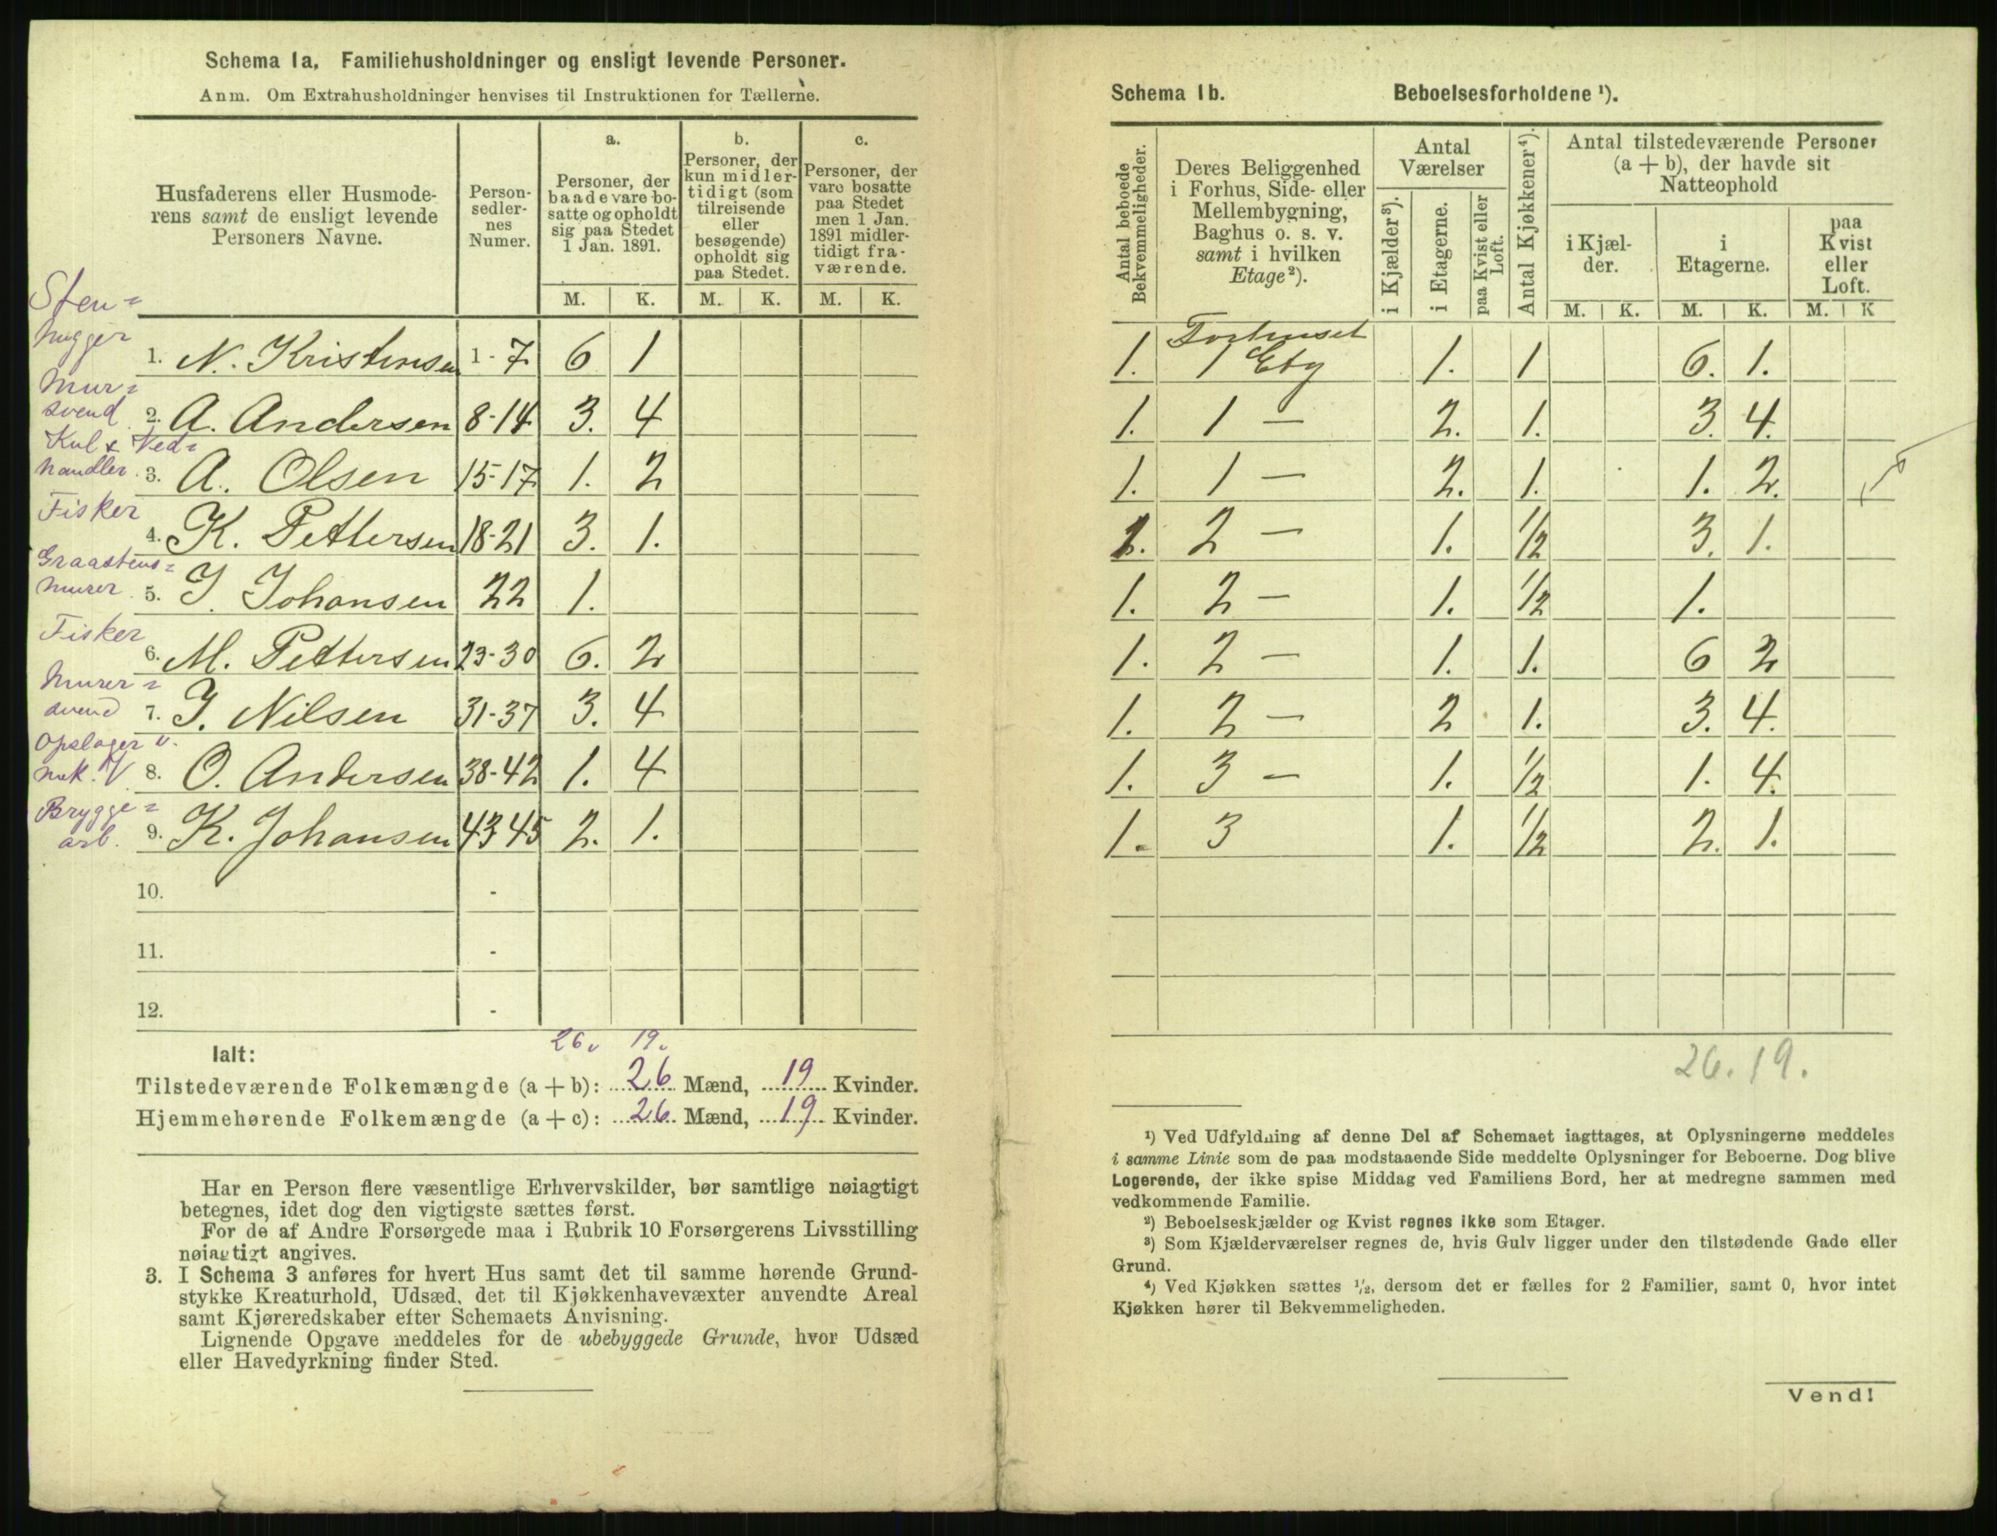 Schema 1a. Familiehusholdninger og ensligt levende Personer.
Anm. Om Extrahusholdninger henvises til Instruktionen for Tællerne.
Husfaderens eller Husmoderens samt de ensligt levende Personers Navne.
Personsedlernes Numer.
a. Personer, der baade vare bosatte og opholdt sig paa Stedet 1 Jan. 1891.
b. Personer, der kun midlertidigt (som tilreisende eller besøgende) opholdt sig paa Stedet.
c. Personer, der vare bosatte paa Stedet men 1 Jan. 1891 midlertidigt fraværende.
M. K. M. K. M. K.
Stenhugger 1. N. Kristensen 1-7 6 1
Mursvend 2. A. Andersen 8-14 3. 4
Kul & Vedhandler. 3. A. Olsen 15-17 1. 2
Fisker 4. K. Pettersen 18-21 3. 1.
Graastensmurer. 5. J. Johansen 22 1.
Fisker 6. M. Pettersen 23-30 6. 2
Murersvend 7. J. Nilsen 31-37 3. 4
Opslager v. mek. V. 8. O. Andersen 38-42 1. 4
Bryggearb. 9. K. Johansen 43 45 2. 1.
10. -
11. -
12. -
26. 19.
Ialt:
Tilstedeværende Folkemængde (a + b): 26 Mænd, 19 Kvinder.
Hjemmehørende Folkemængde (a + c): 26 Mænd, 19 Kvinder.
Har en Person flere væsentlige Erhvervskilder, bør samtlige nøiagtigt
betegnes, idet dog den vigtigste sættes først.
For de af Andre Forsørgede maa i Rubrik 10 Forsørgerens Livsstilling
nøiagtigt angives.
3. I Schema 3 anføres for hvert Hus samt det til samme hørende Grund-
stykke Kreaturhold, Udsæd, det til Kjøkkenhavevæxter anvendte Areal
samt Kjøreredskaber efter Schemaets Anvisning.
Lignende Opgave meddeles for de ubebyggede Grunde, hvor Udsæd
eller Havedyrkning finder Sted.
Schema 1b. Beboelsesforholdene ¹).
Antal beboede Bekvemmeligheder.
Deres Beliggenhed i Forhus, Side- eller Mellembygning, Baghus o. s. v. samt i hvilken Etage²).
Antal Værelser
i Kjælder³).
i Etagerne.
paa Kvist eller Loft.
Antal Kjøkkener⁴).
Antal tilstedeværende Personer (a + b), der havde sit Natteophold
i Kjælder.
i Etagerne.
paa Kvist eller Loft.
M. K. M. K. M. K
1. Forhuset 1 Etg 1. 1 6. 1.
1. 1 — 2. 1. 3. 4.
1. 1 — 2. 1. 1. 2.
1. 2 — 1. 1/2 3. 1.
1. 2 — 1. 1/2 1.
1. 2 — 1. 1. 6 2
1. 2 — 2 1. 3. 4.
1. 3 — 1. 1/2 1. 4.
1. 3 1. 1/2 2. 1.
26. 19.
¹) Ved Udfyldning af denne Del af Schemaet iagttages, at Oplysningerne meddeles
i samme Linie som de paa modstaaende Side meddelte Oplysninger for Beboerne. Dog blive
Logerende, der ikke spise Middag ved Familiens Bord, her at medregne sammen med
vedkommende Familie.
²) Beboelseskjælder og Kvist regnes ikke som Etager.
³) Som Kjælderværelser regnes de, hvis Gulv ligger under den tilstødende Gade eller
Grund.
⁴) Ved Kjøkken sættes 1/2, dersom det er fælles for 2 Familier, samt 0, hvor intet
Kjøkken hører til Bekvemmeligheden.
Vend!